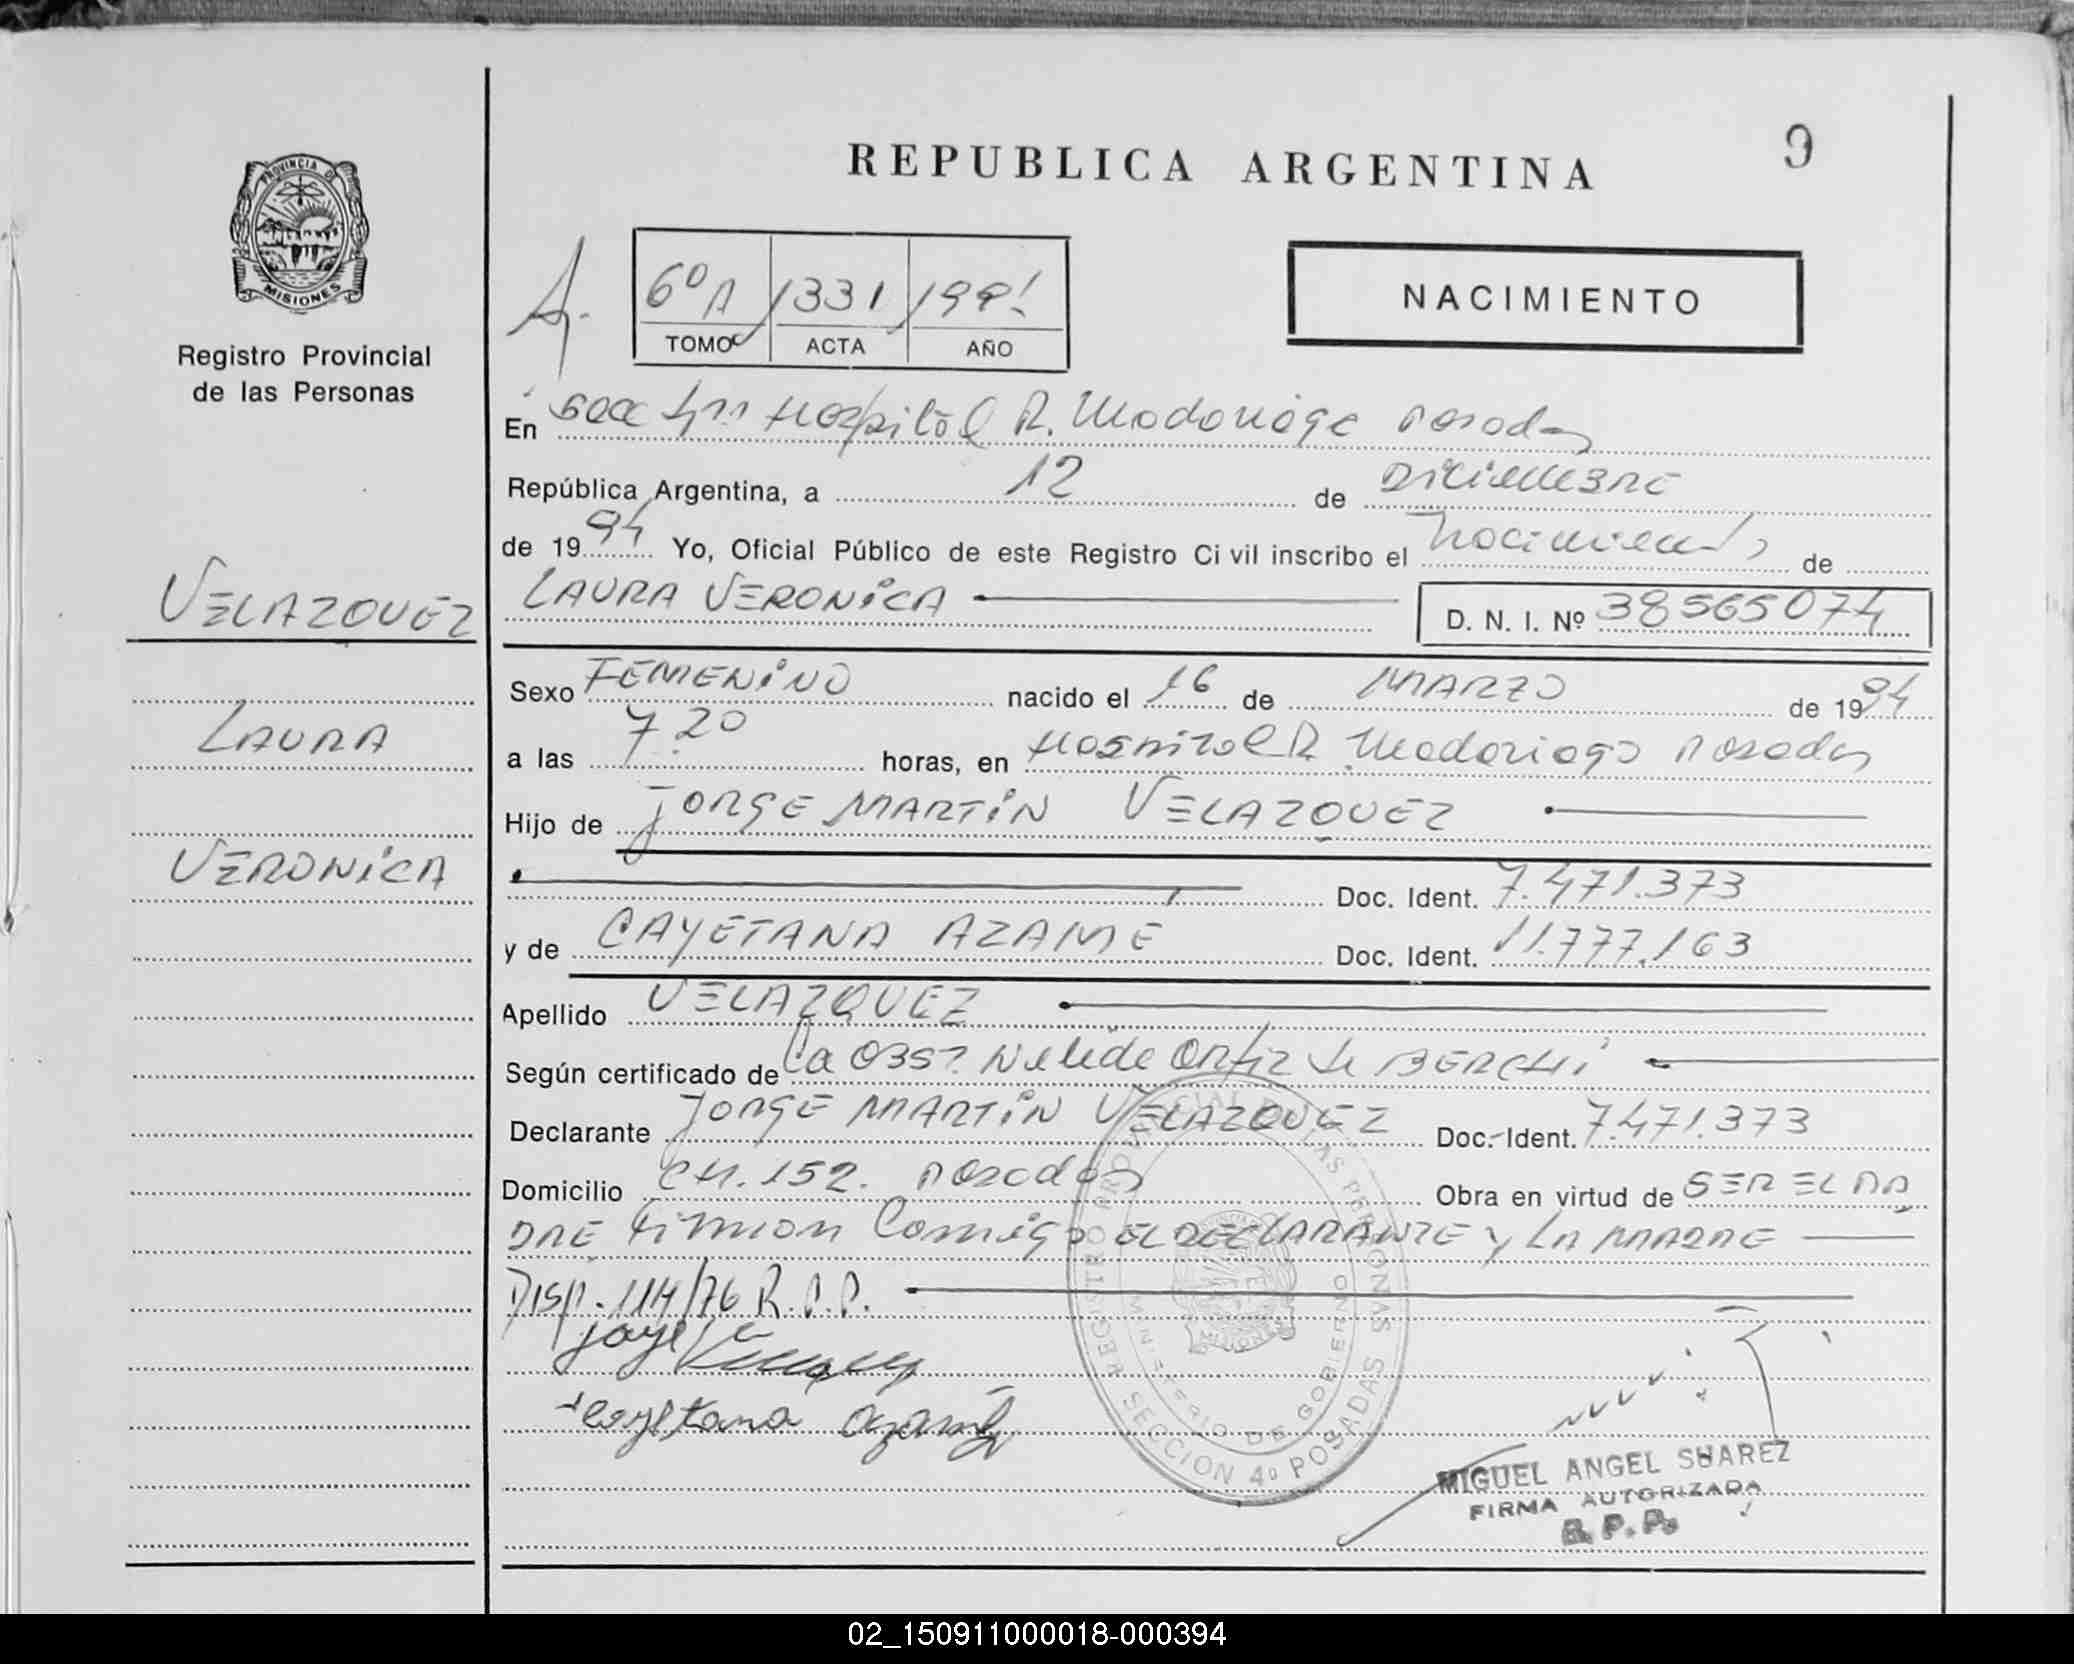 REPUBLICA ARGENTINA
9
PROVINCIA DE
MISIONES
Registro Provincial
de las Personas
6º A 1331 199
TOMO ACTA AÑO
NACIMIENTO
En Secc Hospital R. Madariaga Posadas
República Argentina, a 12 de DICIEMBRE
de 1994 Yo, Oficial Público de este Registro Civil inscribo el Nacimiento de
LAURA VERONICA D. N. I. Nº 38565074
VELAZQUEZ
LAURA
VERONICA
Sexo FEMENINO nacido el 16 de MARZO de 1994
a las 7.20 horas, en Hospital R. Madariaga Posadas
Hijo de JORGE MARTIN VELAZQUEZ
Doc. Ident. 7.471.373
y de CAYETANA AZAME Doc. Ident. 11.777.163
Apellido VELAZQUEZ
Según certificado de La OBST. Nelide Ortiz de BERCHI
Declarante JORGE MARTIN VELAZQUEZ Doc. Ident. 7.471.373
Domicilio CH. 152. Posadas Obra en virtud de SER EL PA
DRE Firman Conmigo EL DECLARANTE y LA MADRE
DISP. 114/76 R.P.P.
Cayetana
REGISTRO PROVINCIAL DE LAS PERSONAS
MINISTERIO DE GOBIERNO
SECCION 4º POSADAS
MIGUEL ANGEL SUAREZ
FIRMA AUTORIZADA
R. P. P.
02_150911000018-000394